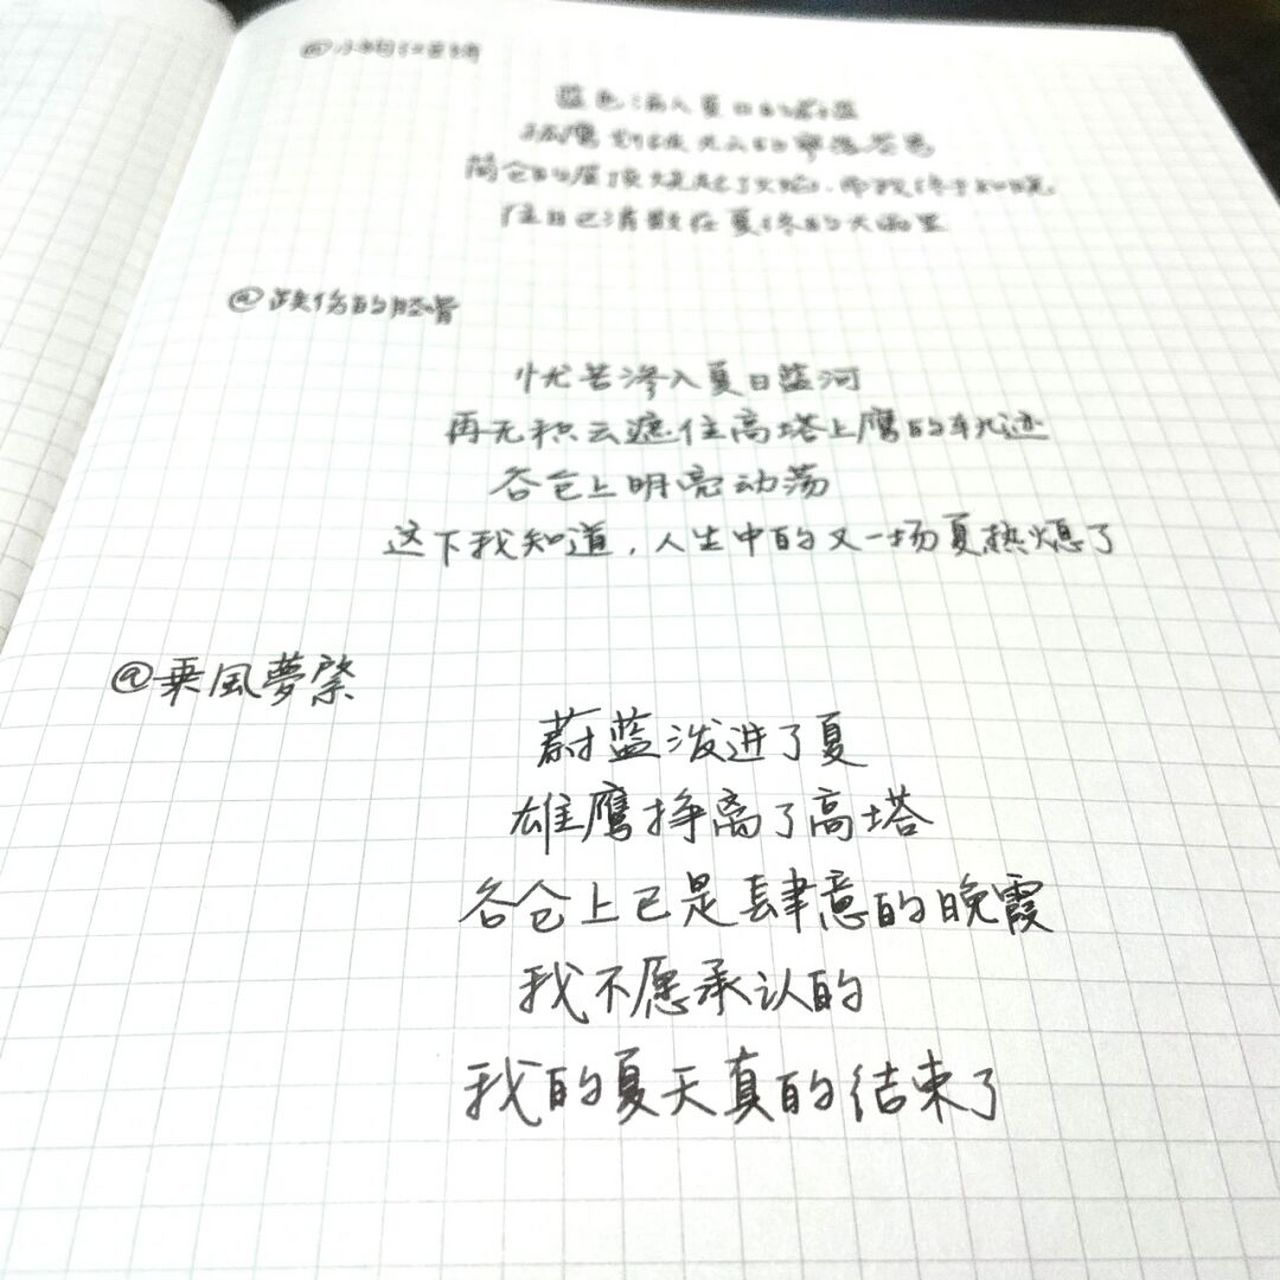 蓝色涌入夏日的
孤鹰划破天云的
筒仓的屋顶烧起了火焰，而我终于知晓
往日已消散在夏终的大雨里
忧苦渗入夏日蓝河
再无积云遮住高塔上鹰的轨迹
谷仓上明亮动荡
这下我知道，人生中的又一场夏热熄了
@乘風夢
蔚蓝泼进了夏
雄鹰挣离了高塔
谷仓上已是肆意的晚霞
我不愿承认的
我的夏天真的结束了